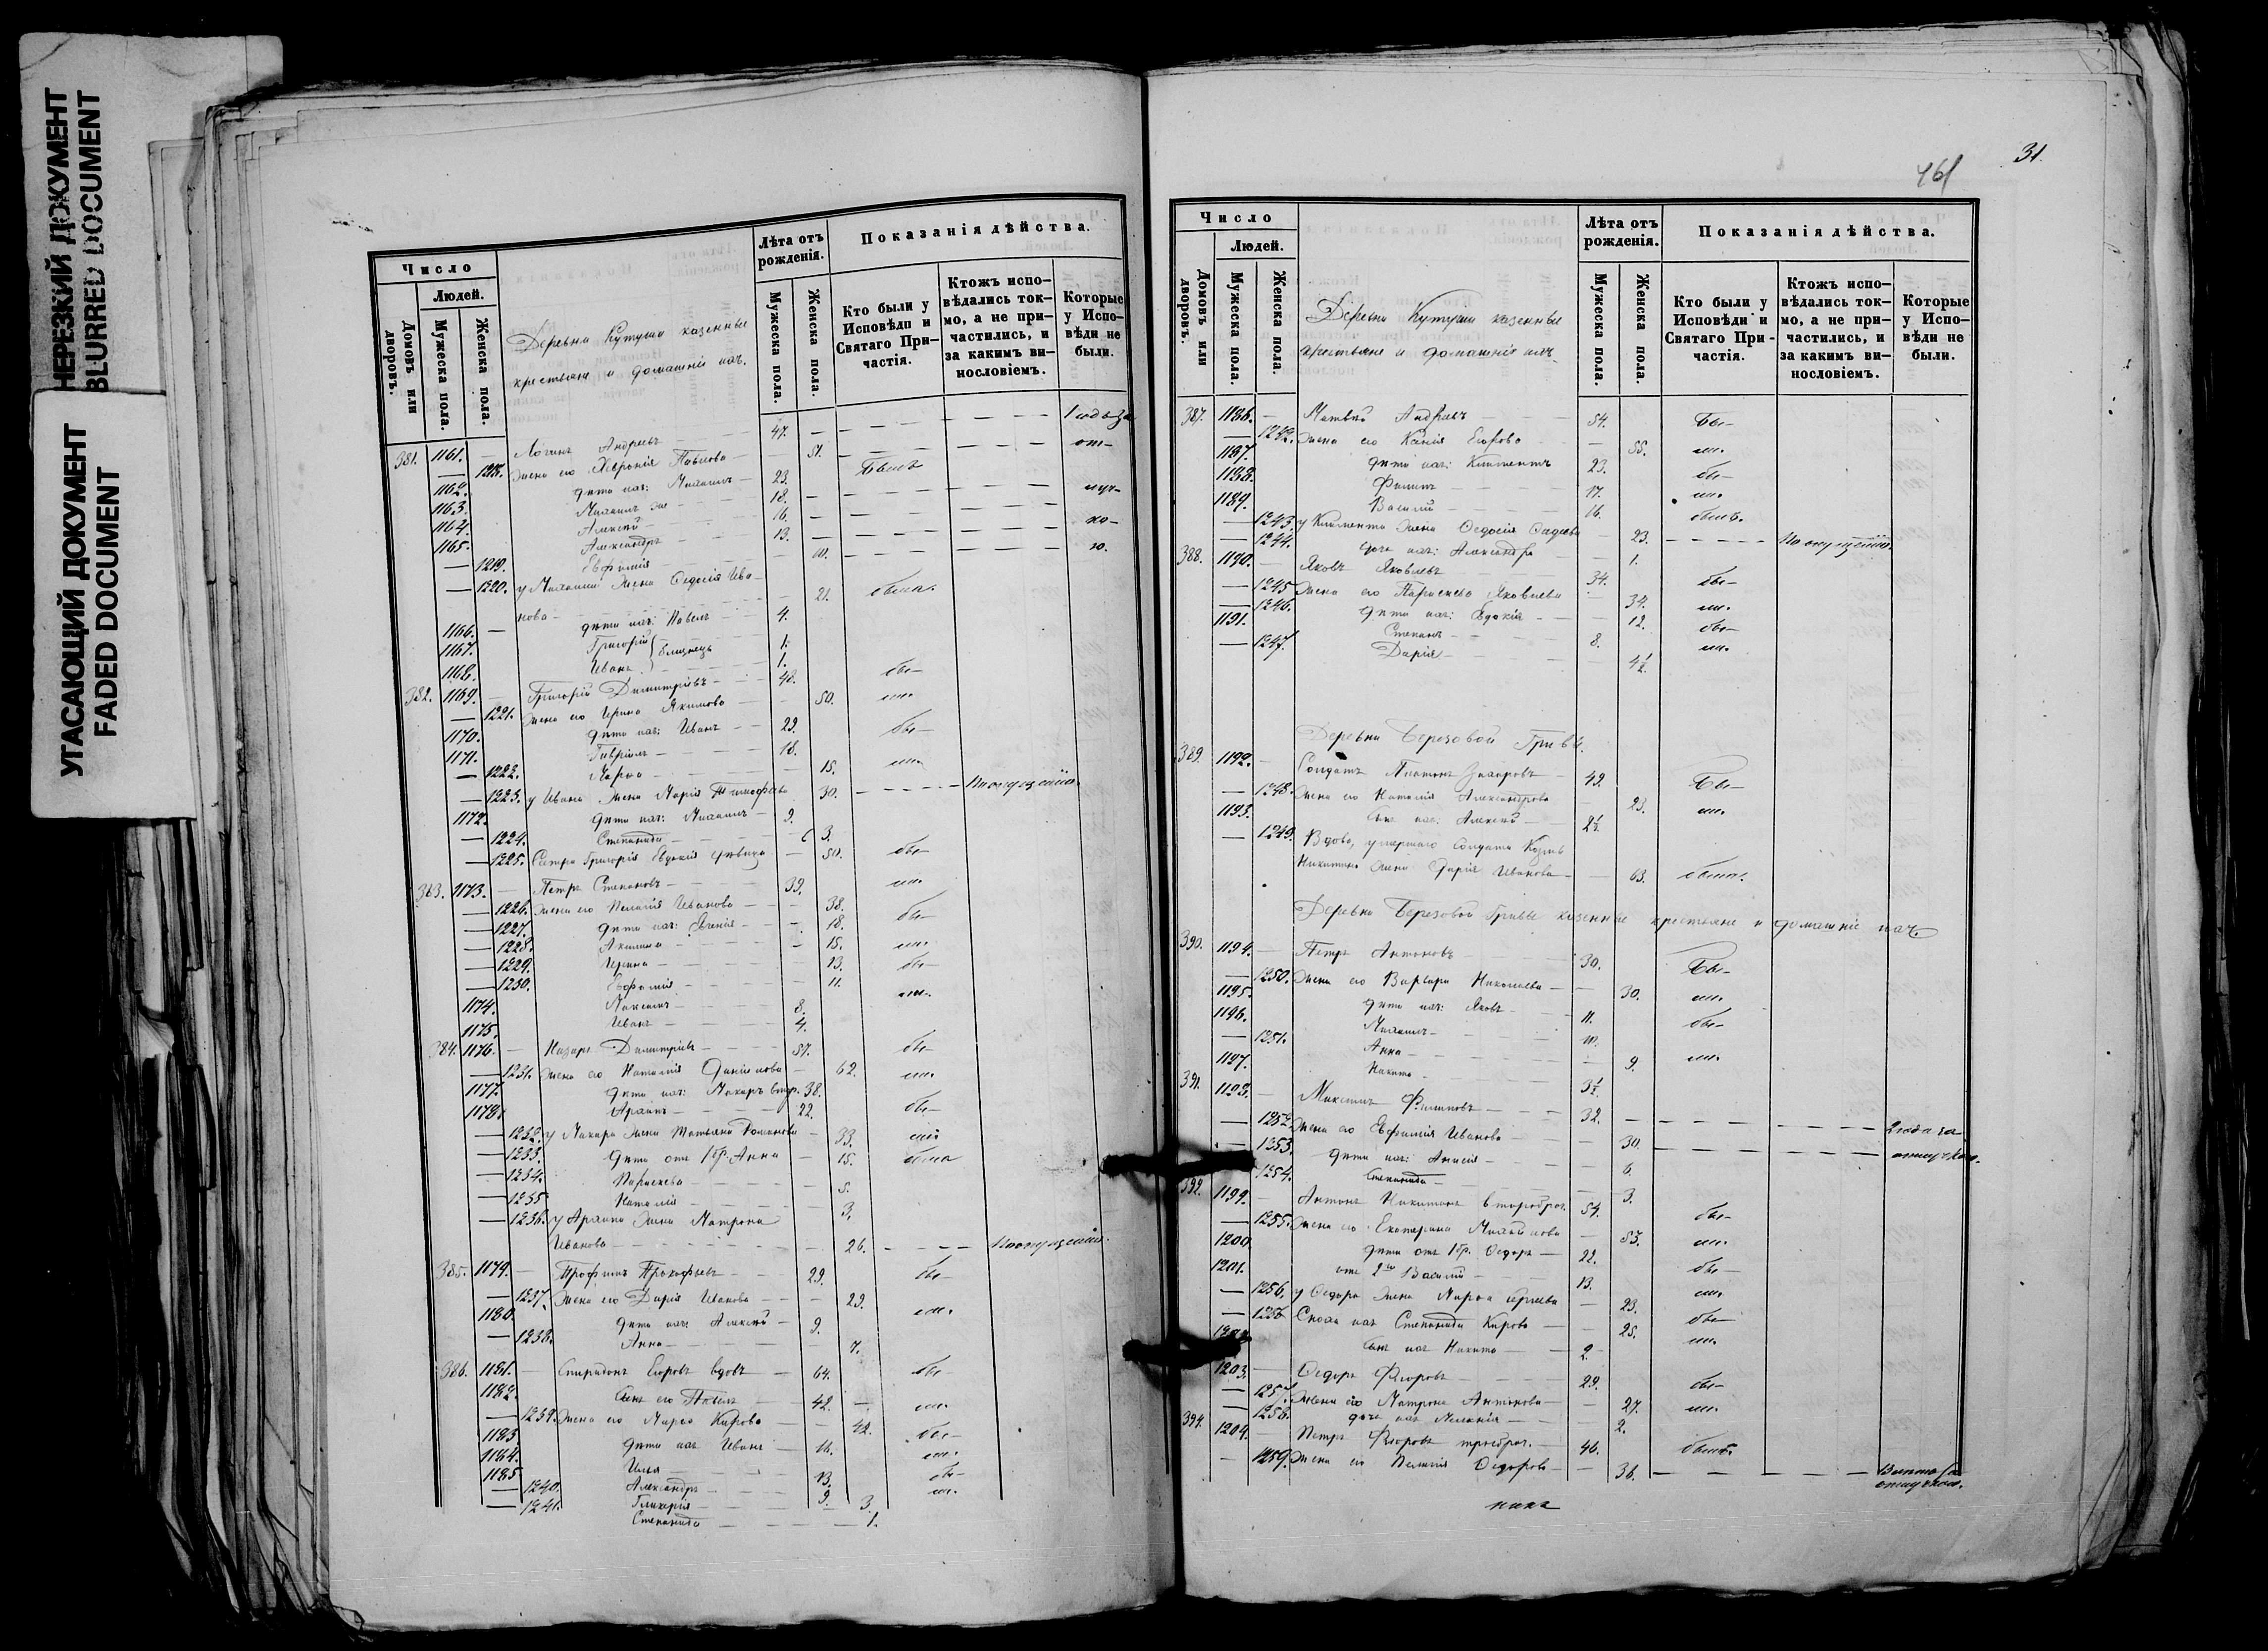 НЕРЕЗКИЙ ДОКУМЕНТ
BLURRED DOCUMENT
УГАСАЮЩИЙ ДОКУМЕНТ
FADED DOCUMENT
Число
Людей.
Домовъ или дворовъ.
Мужеска пола.
Женска пола.
Деревни Кутуши казенные
крестьяне и домашніе ихъ.
Лѣта отъ рожденія.
Мужеска пола.
Женска пола.
Показанія дѣйства.
Кто были у Исповѣди и Святаго Причастія.
Ктожъ исповѣдались токмо, а не причастились, и за какимъ винословіемъ.
Которые у Исповѣди не были.
381. 1161. — Логинъ Андреевъ 47.
1218. Жена его Хевронія Павлова 51.
1162. дѣти ихъ: Михаилъ 23.
1163. Михаилъ 18.
1164. Алексѣй 16.
1165. Александръ 13.
1219. Евфимія
1220. у Михаила жена Ѳедосія Ива-
нова 21. была.
1166. дѣти ихъ: Павелъ 4.
1167. Григорій близнецы 1.
1168. Иванъ 1.
382. 1169. Григорій Димитріевъ 48. бы-
1221. Жена его Ирина Якимова 50. ли.
1170. дѣти ихъ: Иванъ 29. бы-
1171. Гавріилъ 18.
1222. Марѳа 15. ли.
1223. у Ивана жена Марія Тимофѣева 30. По опущенію.
1172. дѣти ихъ: Михаилъ 9.
1224. Степанида 3.
1225. Сестра Григорія Евдокія дѣвица 50. бы-
383. 1173. Петръ Степановъ 39. ли.
1226. Жена его Пелагія Иванова 38.
1227. дѣти ихъ: Евгенія 18. бы-
1228. Акилина 15. ли.
1229. Ирина 13. бы-
1230. Евфимія 11. ли.
1174. Максимъ 8.
1175. Иванъ 4.
384. 1176. Назаръ Димитріевъ 57. бы-
1231. Жена его Наталія Данилова 62. ли.
1177. дѣти ихъ: Макаръ втбр. 38.
1178. Архипъ 22. бы-
1232. у Макара жена Татьяна Романова 33. ли
1233. дѣти отъ 1 бр. Анна 15. была
1234. Параскева 5.
1235. Наталія 3.
1236. у Архипа жена Матрона
Иванова 26. По опущенію.
385. 1179. Трофимъ Прокофьевъ 29. бы-
1237. Жена его Дарія Иванова 29. ли.
1180. дѣти ихъ: Алексѣй 9.
1238. Анна 7.
386. 1181. Спиридонъ Егоровъ вдовъ 64. бы-
1182. Сынъ его Павелъ 42. ли.
1239. Жена его Марѳа Карпова 42. бы-
1183 дѣти ихъ Иванъ ли.
1184. Илья 13. бы-
1185 Александръ 9. ли.
1240. Гликерія 3.
1241. Степанида 1.
461
31.
Число
Людей.
Домовъ или дворовъ.
Мужеска пола.
Женска пола.
Деревни Кутуши казенные
крестьяне и домашніе ихъ.
Лѣта отъ рожденія.
Мужеска пола.
Женска пола.
Показанія дѣйства.
Кто были у Исповѣди и Святаго Причастія.
Ктожъ исповѣдались токмо, а не причастились, и за какимъ винословіемъ.
Которые у Исповѣди не были.
387. 1186. Матвѣй Андреевъ 54. Бы-
1242. Жена его Ксенія Егорова 55. ли.
1187. дѣти ихъ: Климентъ 23. бы-
1188. Филипъ 17. ли.
1189. Василій 16. былъ.
1243. у Климента жена Ѳедосія Ѳадеева 23. По опущенію.
1244. дочь ихъ: Александра 1.
388. 1190. Яковъ Яковлевъ 34. бы-
1245 Жена его Параскева Яковлева 34. ли.
1246. дѣти ихъ: Евдокія 12. бы-
1191. Степанъ 8. ли.
1247. Дарія 4½.
Деревни Березовой Гривы.
389. 1192. Солдатъ Платонъ Захаровъ 49. Бы-
1248. Жена его Наталія Александрова 23. ли.
1193. Сынъ ихъ: Алексѣй 2½.
1249. Вдова, умершаго Солдата Козмы
Никитина жена Дарія Иванова 63. была.
Деревни Березовой Гривы казенные крестьяне и домашніе ихъ.
390. 1194. Петръ Антоновъ 30. Бы-
1250. Жена его Варвара Николаева 30. ли.
1195. дѣти ихъ: Яковъ 11. бы-
1196. Михаилъ 10.
1251. Анна 9. ли.
1197. Никита 3½.
391. 1198. Максимъ Филиповъ 32. 2 года за
1252. Жена его Евфимія Иванова 30. отлучкою.
1253. дѣти ихъ: Анисія 6.
1254. Степанида 3.
392. 1199. Антонъ Никитинъ второбрач. 54. бы-
1255. Жена его Екатерина Михайлова 53. ли.
1200. дѣти отъ 1 бр. Ѳедоръ 22. бы-
1201. отъ 2го Василій 13. ли.
1256. у Ѳедора жена Марѳа 23. бы-
Сноха ихъ Степанида Карпова 25. ли.
Сынъ ихъ Никита 2.
1203. Ѳедоръ Егоровъ 29. бы-
1257. Жена его Матрона Антонова 27. ли.
1258. дочь ихъ Меланія 2.
394. 1204. Петръ Егоровъ троебрач. 46. былъ.
1259. Жена его Пелагія Ѳедорова 36. отлучкою.